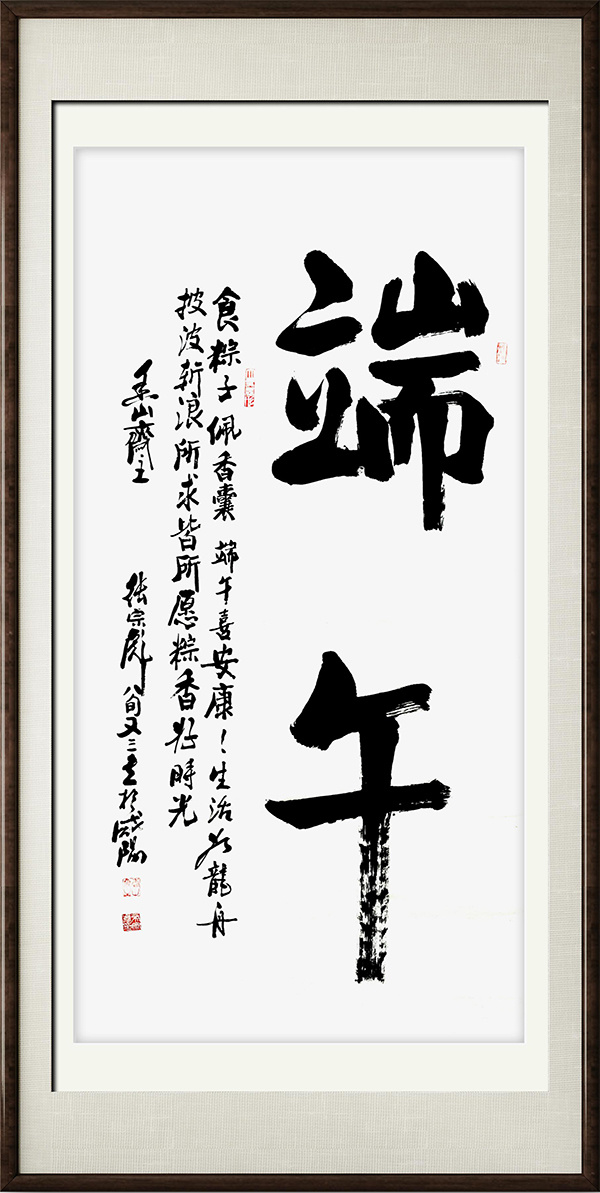 端午
食粽子佩香囊 端午喜安康！生活如龍舟
披波斩浪所求皆所愿粽香好時光
山齋主 张宗彪 八旬又三书於咸陽